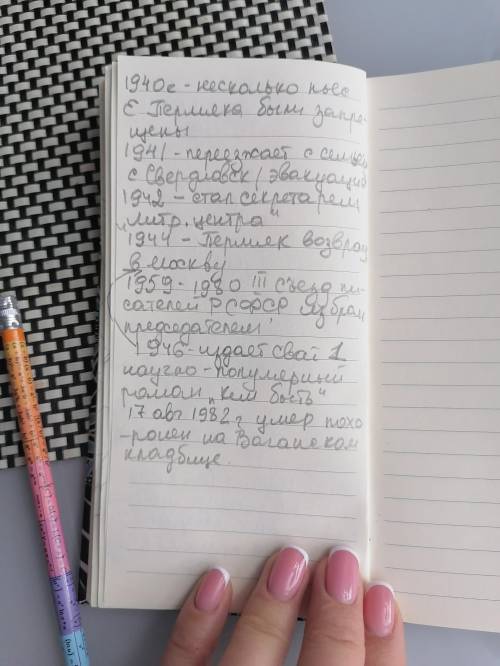 1940е - несколько пьес
Е Пермяка были запре-
щены
1941 - переезжает с семьей
с Свердловск / эвакуация
1942 - стал секретарем
„литр. центра"
1944 - Пермяк возвращ
в москву
1959 - 1980 III Съезд пи-
сателей РСФСР Избран
председателем
1946 - издает свай 1
научно - популярный
роман „кем быть"
17 авг 1982г умер похо
-ронен на Ваганском
кладбище.